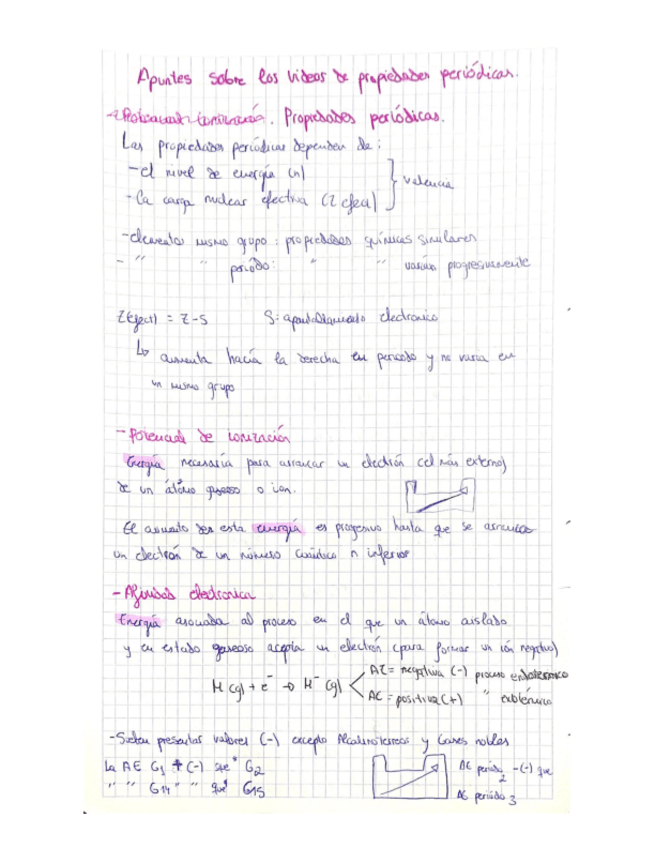 Apuntes sobre los videos de propiedades periódicas.
Propiedades periódicas.
Las propiedades periódicas dependen de:
- el nivel de energía (n)
- la carga nuclear efectiva (Z efect)
} valencia
- elementos mismo grupo: propiedades químicas similares
- " " periodo: " " varían progresivamente
Z(efect) = Z - S S: apantallamiento electronico
↳ aumenta hacia la derecha en periodo y no varia en
un mismo grupo
- Potencial de ionización
Energía necesaria para arrancar un electrón (el más externo)
de un átomo gaseoso o ion.
El aumento de esta energía es progresivo hasta que se arranca
un electrón de un número cuántico n inferior
- Afinidad electronica
Energía asociada al proceso en el que un átomo aislado
y en estado gaseoso acepta un electrón (para formar un ión negativo)
H(g) + e⁻ → H⁻(g)
AE = negativa (-) proceso
AE = positiva (+) "
- Suelen presentar valores (-) excepto Alcalinoterreos y Gases nobles
La AE G1 + (-) que G2
" " G14 " " que G15
AE periodo 2 - (-) que
AE periodo 3